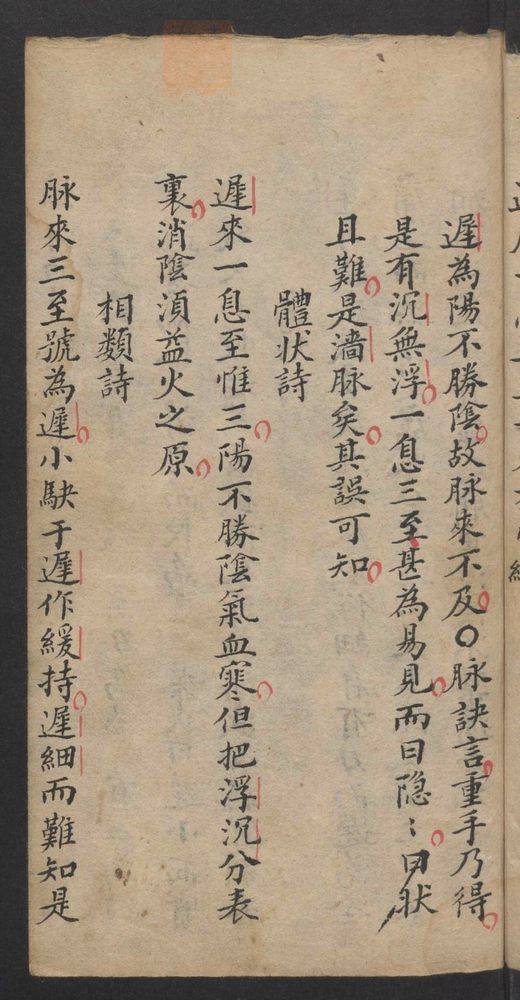 遲為陽不勝陰故脉來不及〇脉訣言重手乃得
是有沉無浮一息三至甚為易見而曰隐〻曰狀
且難是濇脉矣其誤可知
體状詩
遲來一息至惟三陽不勝陰氣血寒但把浮沉分表
裏消陰湏益火之原
相類詩
脉來三至號為遲小駃于遲作緩持遲細而難知是